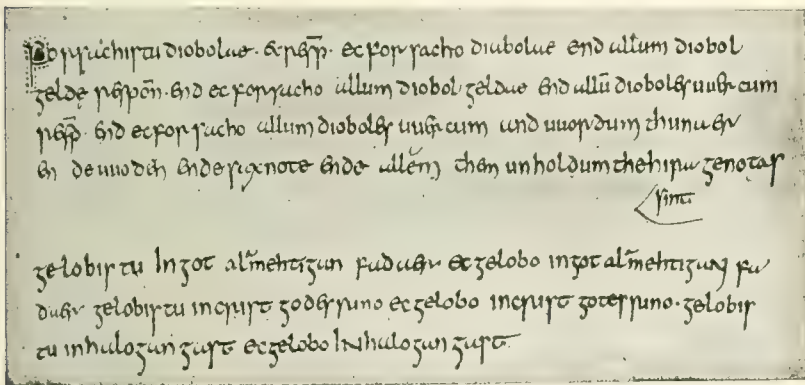 Forsachistu diobolae · & resp̄ · ec forsacho diabolae end allum diobol
gelde respoñ · end ec forsacho allum diobolgeldae end allū dioboles uuercum
resp̄ · end ec forsacho allum dioboles uuercum and uuordum thunaer
ende uuoden ende saxnote ende allem them unholdum the hira genotas
sint
gelobistu in got alamehtigan fadaer ec gelobo in got alamehtigan fa
daer gelobistu in crist godes suno ec gelobo in crist gotes suno · gelobis
tu in halogan gast ec gelobo in halogan gast